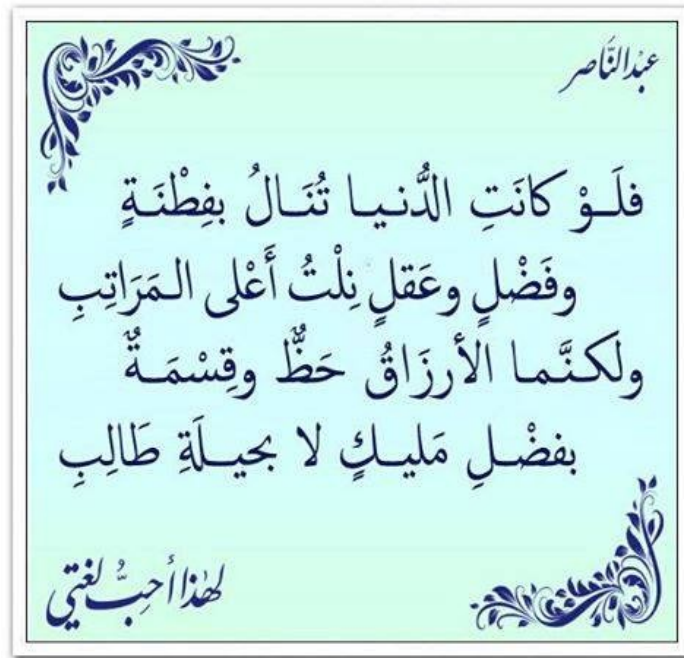 عبْدالنَّاصر
فلَـوْ كانَتِ الدُّنيـا تُنَـالُ بفِطْنَـةٍ
وفَضْلٍ وعَقلٍ نِلْتُ أَعْلى المَرَاتِبِ
ولَكـنَّمـا الأرزَاقُ حَظٌّ وقِسْمَـةٌ
بفضْـلِ مَليـكٍ لا بحيـلَةِ طَالِبِ
لهٰذا أحبُّ لغتي